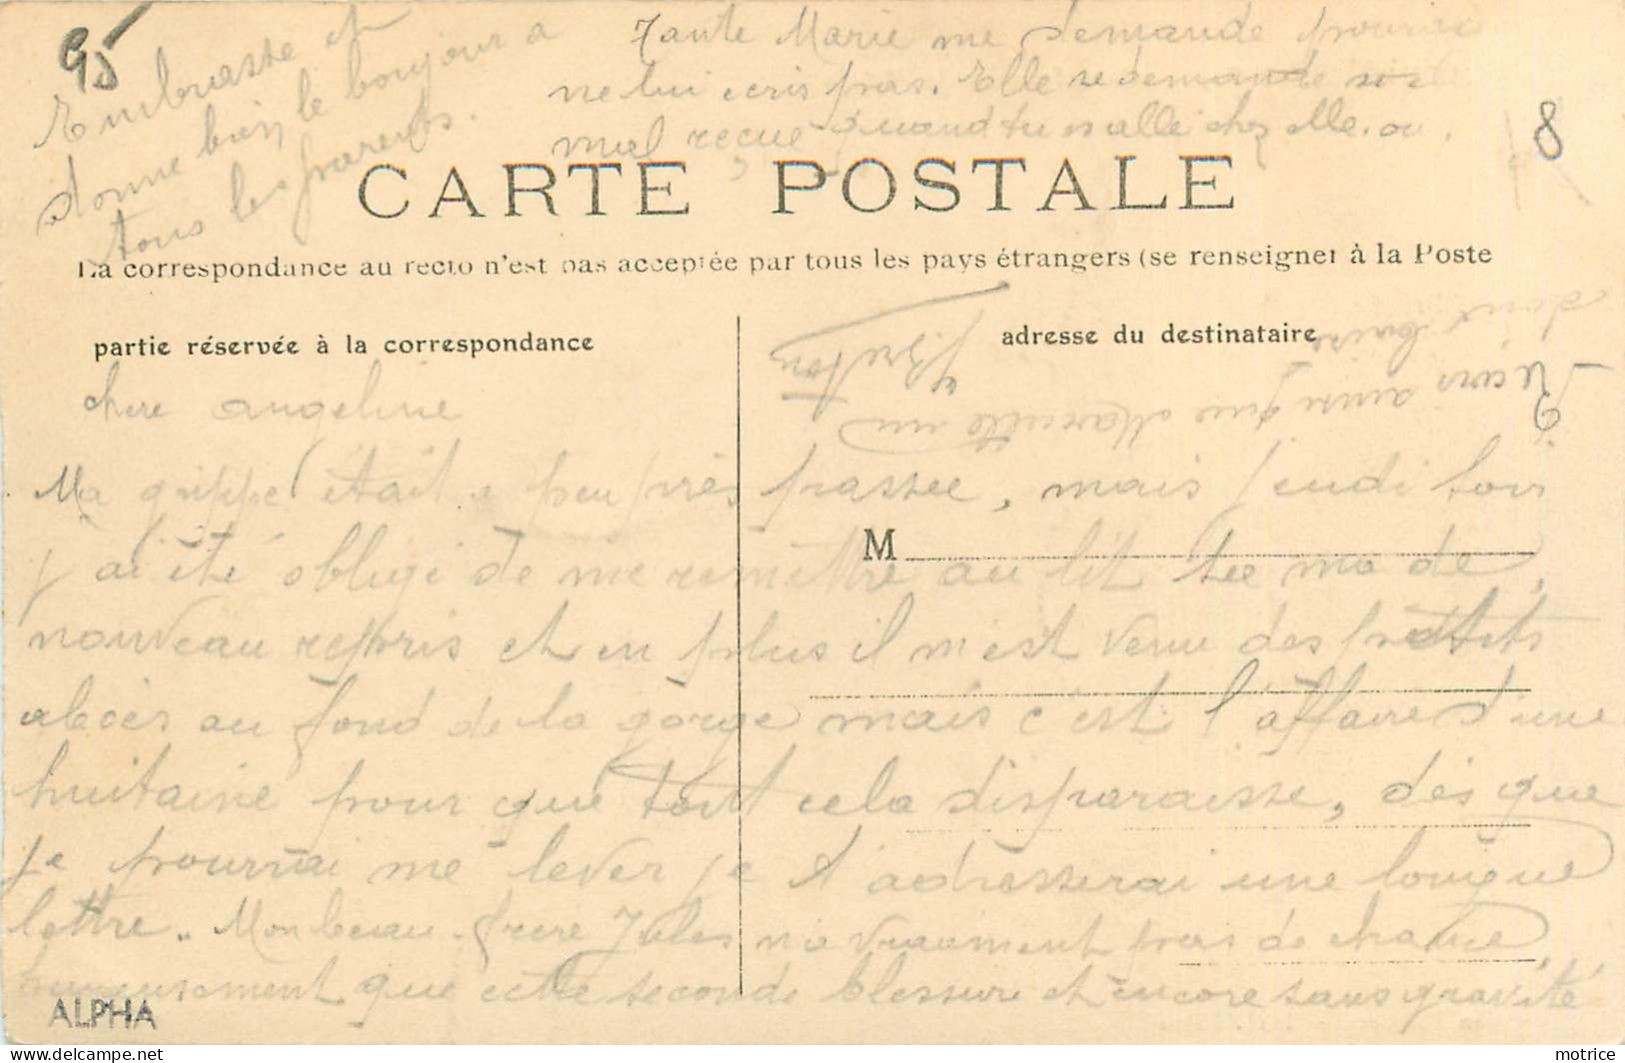 95
Embrasse et
donne bien le bonjour a
tous les parents.
Tante Marie me demande
ne lui ecris pas. Elle se demande
miel reçue quand tu es allé chez elle. ou
8
CARTE POSTALE
La correspondance au recto n'est pas acceptée par tous les pays étrangers (se renseigner à la Poste
partie réservée à la correspondance
adresse du destinataire
chere angeline
Ma grippe était a peu près passee, mais jeudi soir
j'ai été obligé de me remettre au lit elle ma de
nouveau repris et en plus il m'est venu des petits
abcès au fond de la gorge mais c'est l'affaire d'une
huitaine pour que tout cela disparaisse, dès que
je pourrai me lever je t'adresserai une longue
lettre. Mon beau-frere Jules n'a vraiment pas de chance,
heureusement que cette seconde blessure est encore sans gravité
Reçois ainsi que Marcelle un
doux baiser
M
ALPHA
motrice